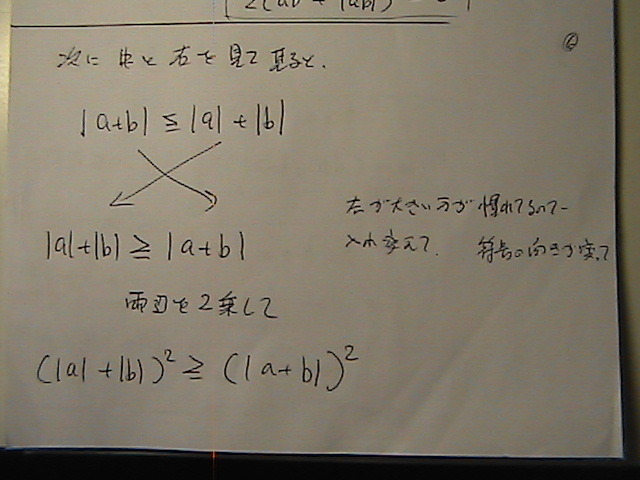 2(ab + |ab|)
次に 中と 右を 見て 見ると、
|a+b| ≦ |a| + |b|
左が大きい方が 慣れてるので
|a|+|b| ≧ |a+b|
入れ変えて. 符号の向きが変って
両辺を2乗して
(|a| + |b|)² ≧ (|a+b|)²